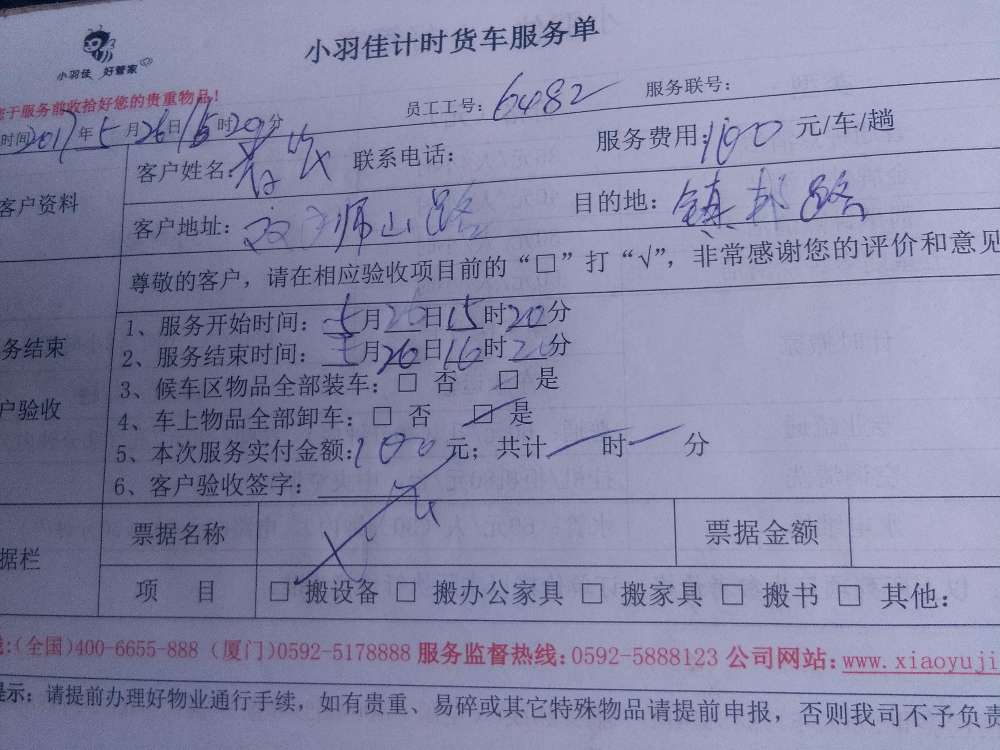 小羽佳计时货车服务单
小羽佳 好管家
您于服务前收拾好您的贵重物品！
员工工号：6482 服务联号：
时间2017年5月26日15时20分
客户资料
客户姓名： 联系电话： 服务费用：100元/车/趟
客户地址：狮山路 目的地：镇邦路
尊敬的客户，请在相应验收项目前的“□”打“√”，非常感谢您的评价和意见
务结束
户验收
1、服务开始时间：5月26日15时20分
2、服务结束时间：5月26日16时20分
3、候车区物品全部装车：□ 否 □ 是
4、车上物品全部卸车：□ 否 □ 是
5、本次服务实付金额：100元；共计 时 分
6、客户验收签字：
据栏
票据名称 票据金额
项 目 □ 搬设备 □ 搬办公家具 □ 搬家具 □ 搬书 □ 其他：
线：(全国)400-6655-888 (厦门)0592-5178888 服务监督热线：0592-5888123 公司网站：www.xiaoyuji
提示：请提前办理好物业通行手续，如有贵重、易碎或其它特殊物品请提前申报，否则我司不予负责